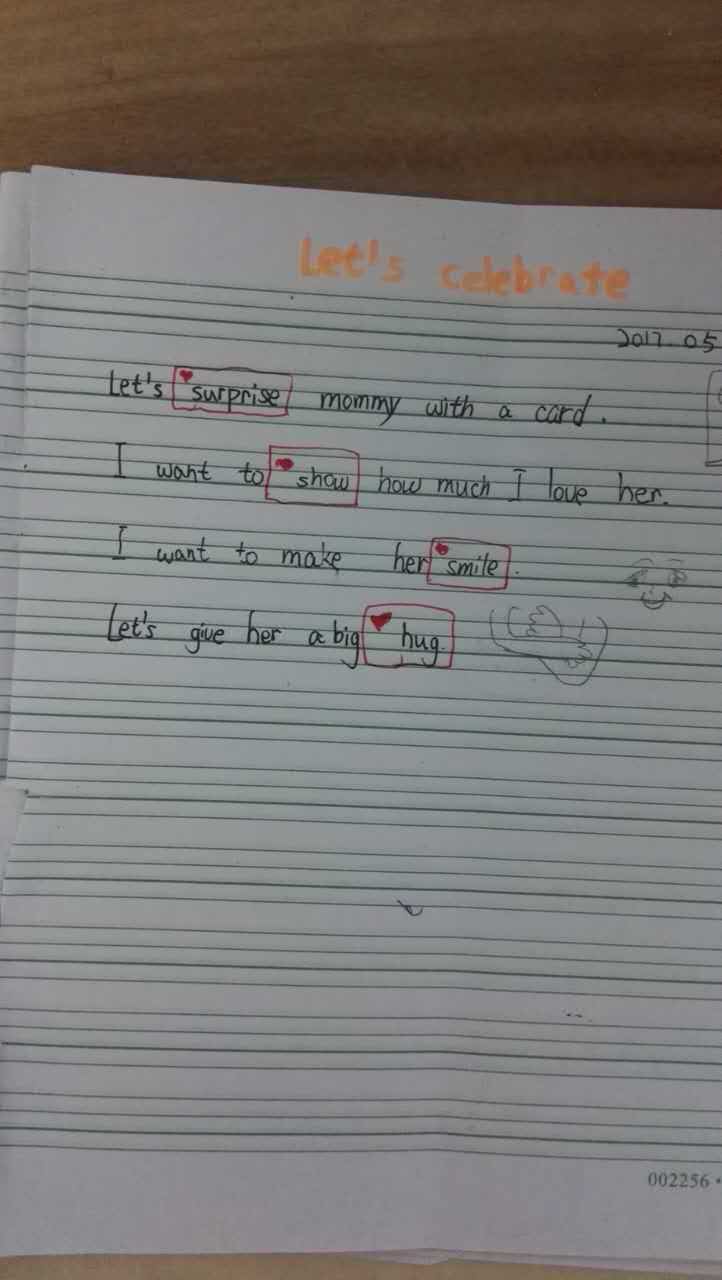 Let's celebrate
2017.05
Let's surprise mommy with a card.
I want to show how much I love her.
I want to make her smile.
Let's give her a big hug.
002256